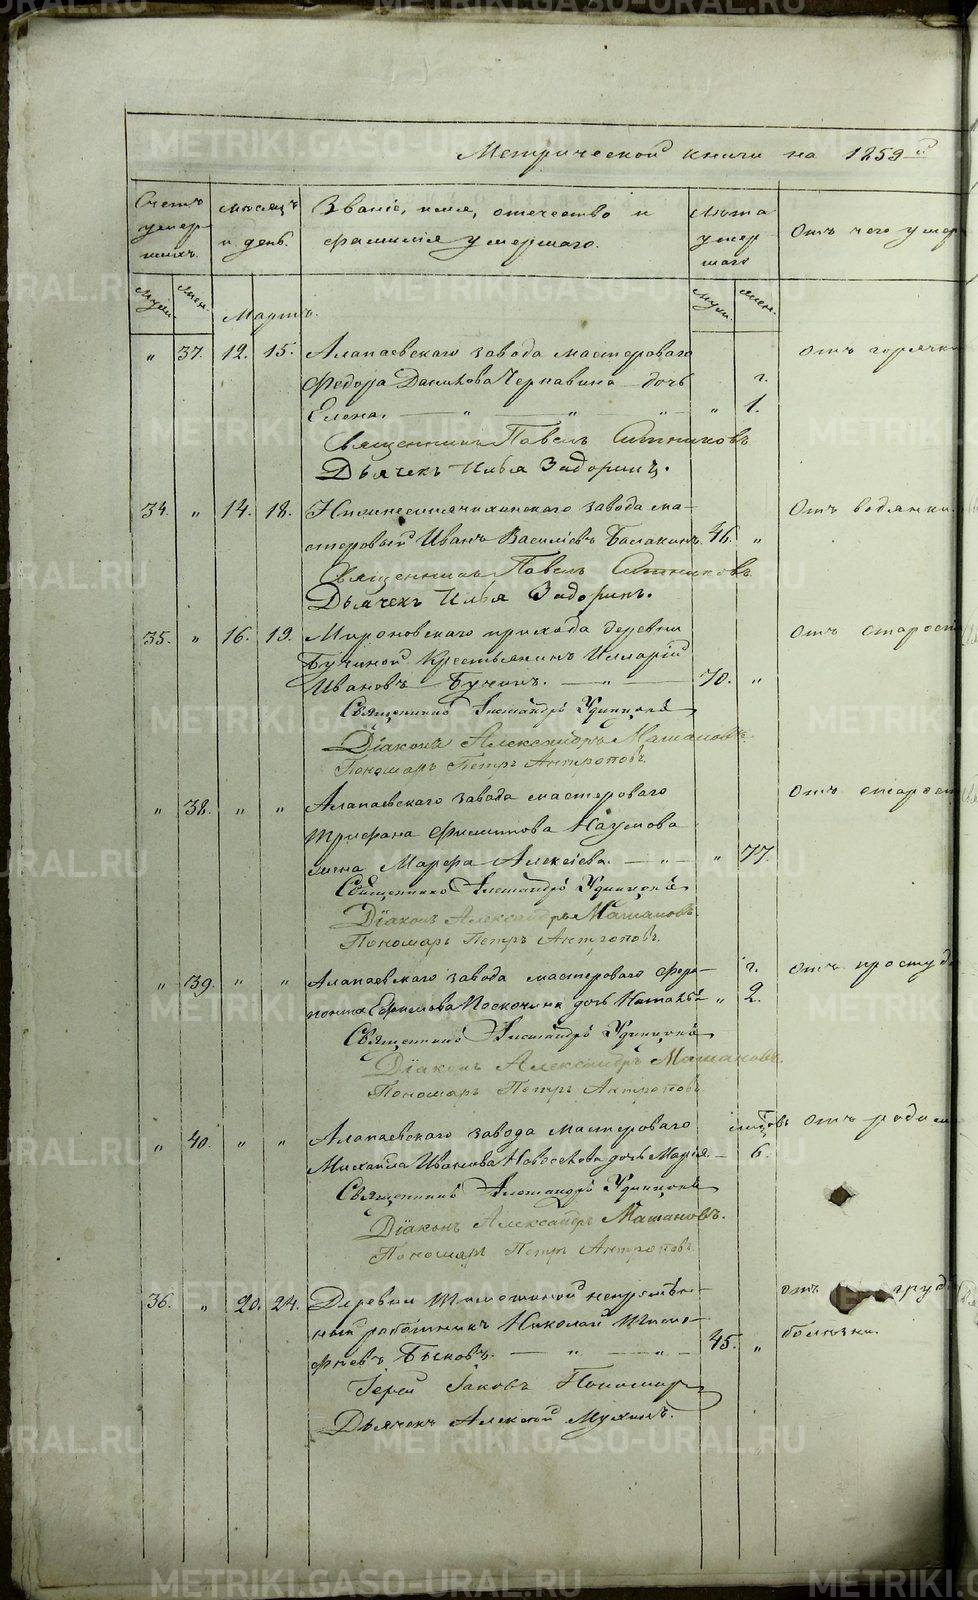 Метрической книги на 1859й
Счетъ умер-шихъ.
Мѣсяцъ и день.
Званіе, имя, отечество и фамилія умершаго.
Лѣта умер-шаго
Отъ чего умер
Муж.
Жен.
Мартъ.
Муж.
Жен.
„ 37. 12. 15. Алапаевскаго завода мастероваго отъ горячки
Федора Данилова Чернавина дочь г.
Елена. — „ — „ „ — „ 1.
Священникъ Павелъ
Дьячекъ Илья Задоринъ.
34. „ 14. 18. завода ма- Отъ водянки.
стеровый Иванъ Василіевъ Балакинъ. 46. „
Священникъ Павелъ
Дьячекъ Илья Задоринъ.
35. „ 16. 19. Мироновскаго прихода деревни отъ старости
Бучиной Крестьянинъ Илларій
Ивановъ Бучинъ. — „ — 70. „
Священникъ Александръ Удинцовъ
Діаконъ Александръ Машановъ.
Пономарь Петръ Антроповъ.
„ 38. „ „ Алапаевскаго завода мастероваго отъ старости
Трифана Филипова Наумова
жена Марфа Алексіева. — „ — „ 77.
Священникъ Александръ Удинцовъ
Діаконъ Александръ Машановъ.
Пономарь Петръ Антроповъ.
„ 39. „ „ Алапаевскаго завода мастероваго Фера- г. отъ простуды
понта Ефимова Поскочина дочь Наталья „ 2.
Священникъ Александръ Удинцовъ
Діаконъ Александръ Машановъ.
Пономарь Петръ Антроповъ
„ 40. „ „ Алапаевскаго завода мастероваго отъ
Михаила Иванова Новоселова дочь Марія — 6.
Священникъ Александръ Удинцовъ
Діаконъ Александръ Машановъ.
Пономарь Петръ Антроповъ
36. „ 20. 24. Деревни Тимошиной непремѣн- отъ груд
ный работникъ Николай Тимо-
фѣевъ Быковъ. — „ — „ — 45. „ болѣзни.
Іерей Іаковъ Пономаревъ
Дьячекъ Алексій Мухинъ.
METRIKI.GASO-URAL.RU